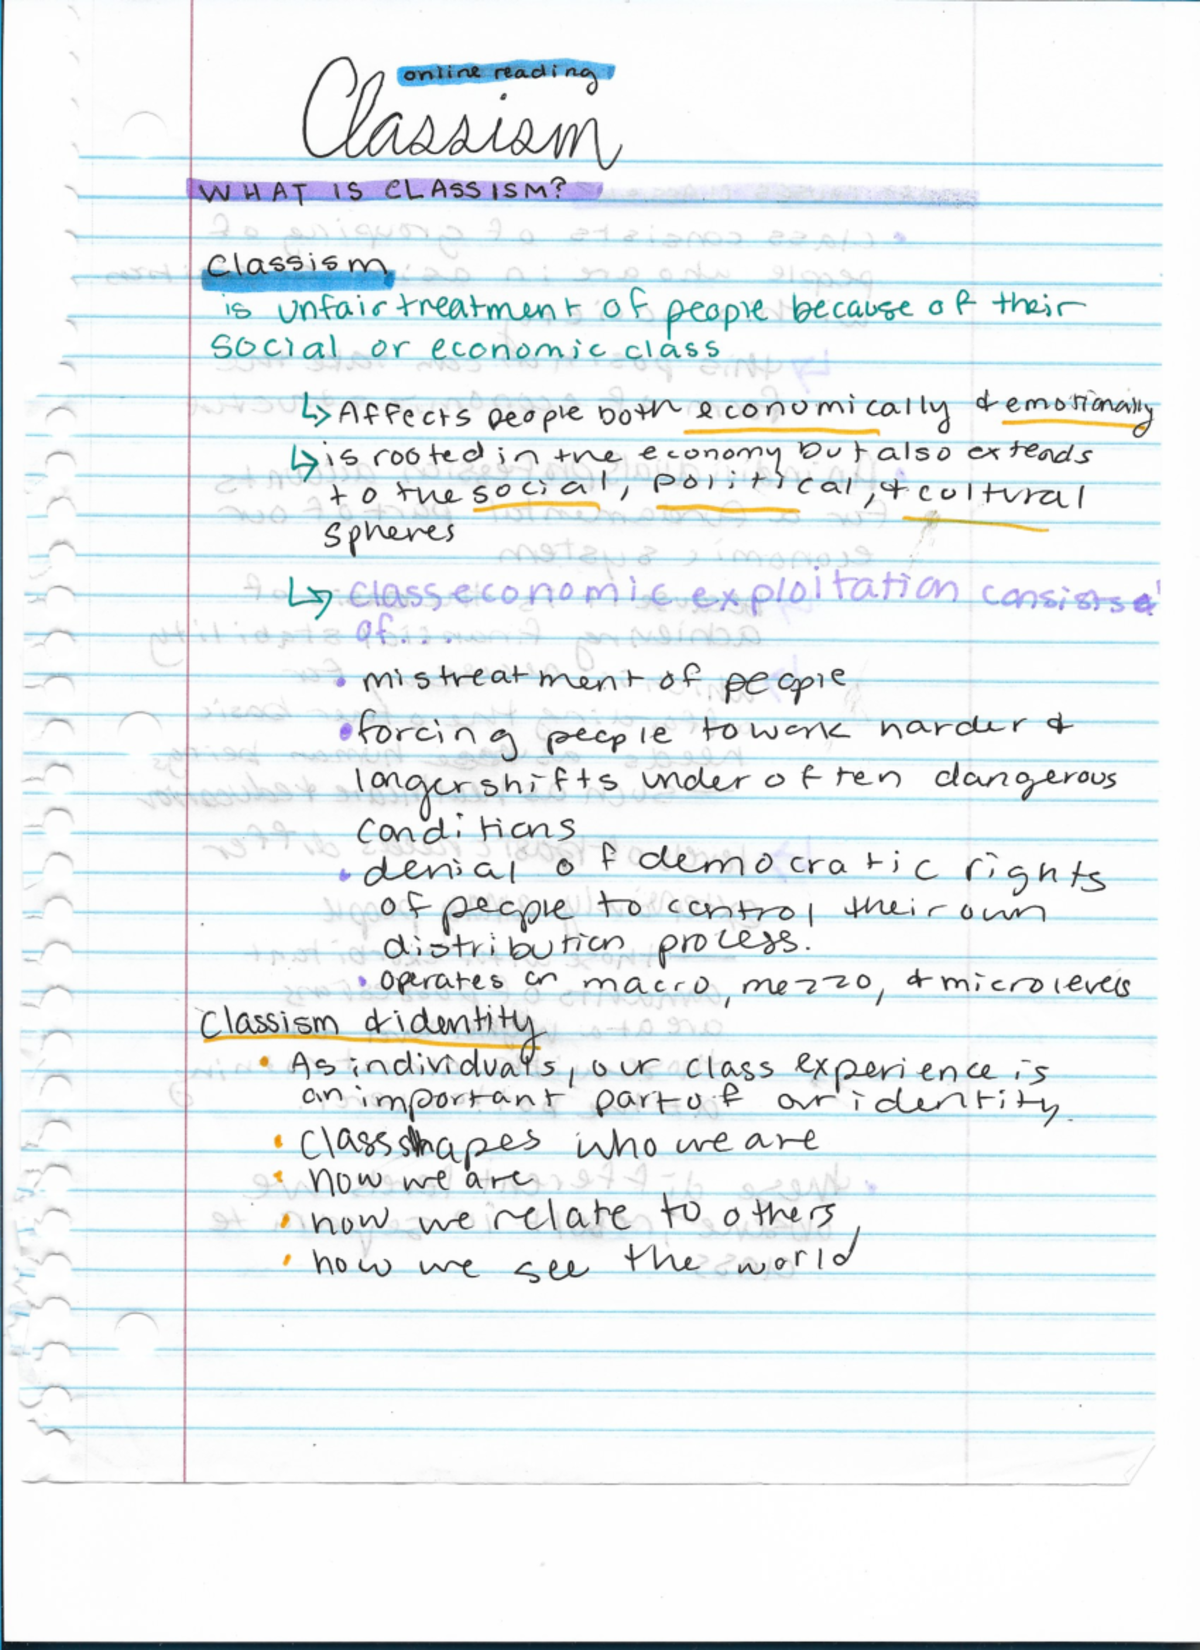 online reading
Classism
WHAT IS CLASSISM?
Classism
is unfair treatment of people because of their
social or economic class
↳ Affects people both economically & emotionally
↳ is rooted in the economy but also extends
to the social, political, & cultural
spheres
↳ Class economic exploitation consists
of...
• mistreatment of people
• forcing people to work harder &
longer shifts under often dangerous
conditions
• denial of democratic rights
of people to control their own
distribution process.
• operates on macro, mezzo, & micro levels
Classism & identity
• As individuals, our class experience is
an important part of our identity.
• Class shapes who we are
• how we are
• how we relate to others
• how we see the world